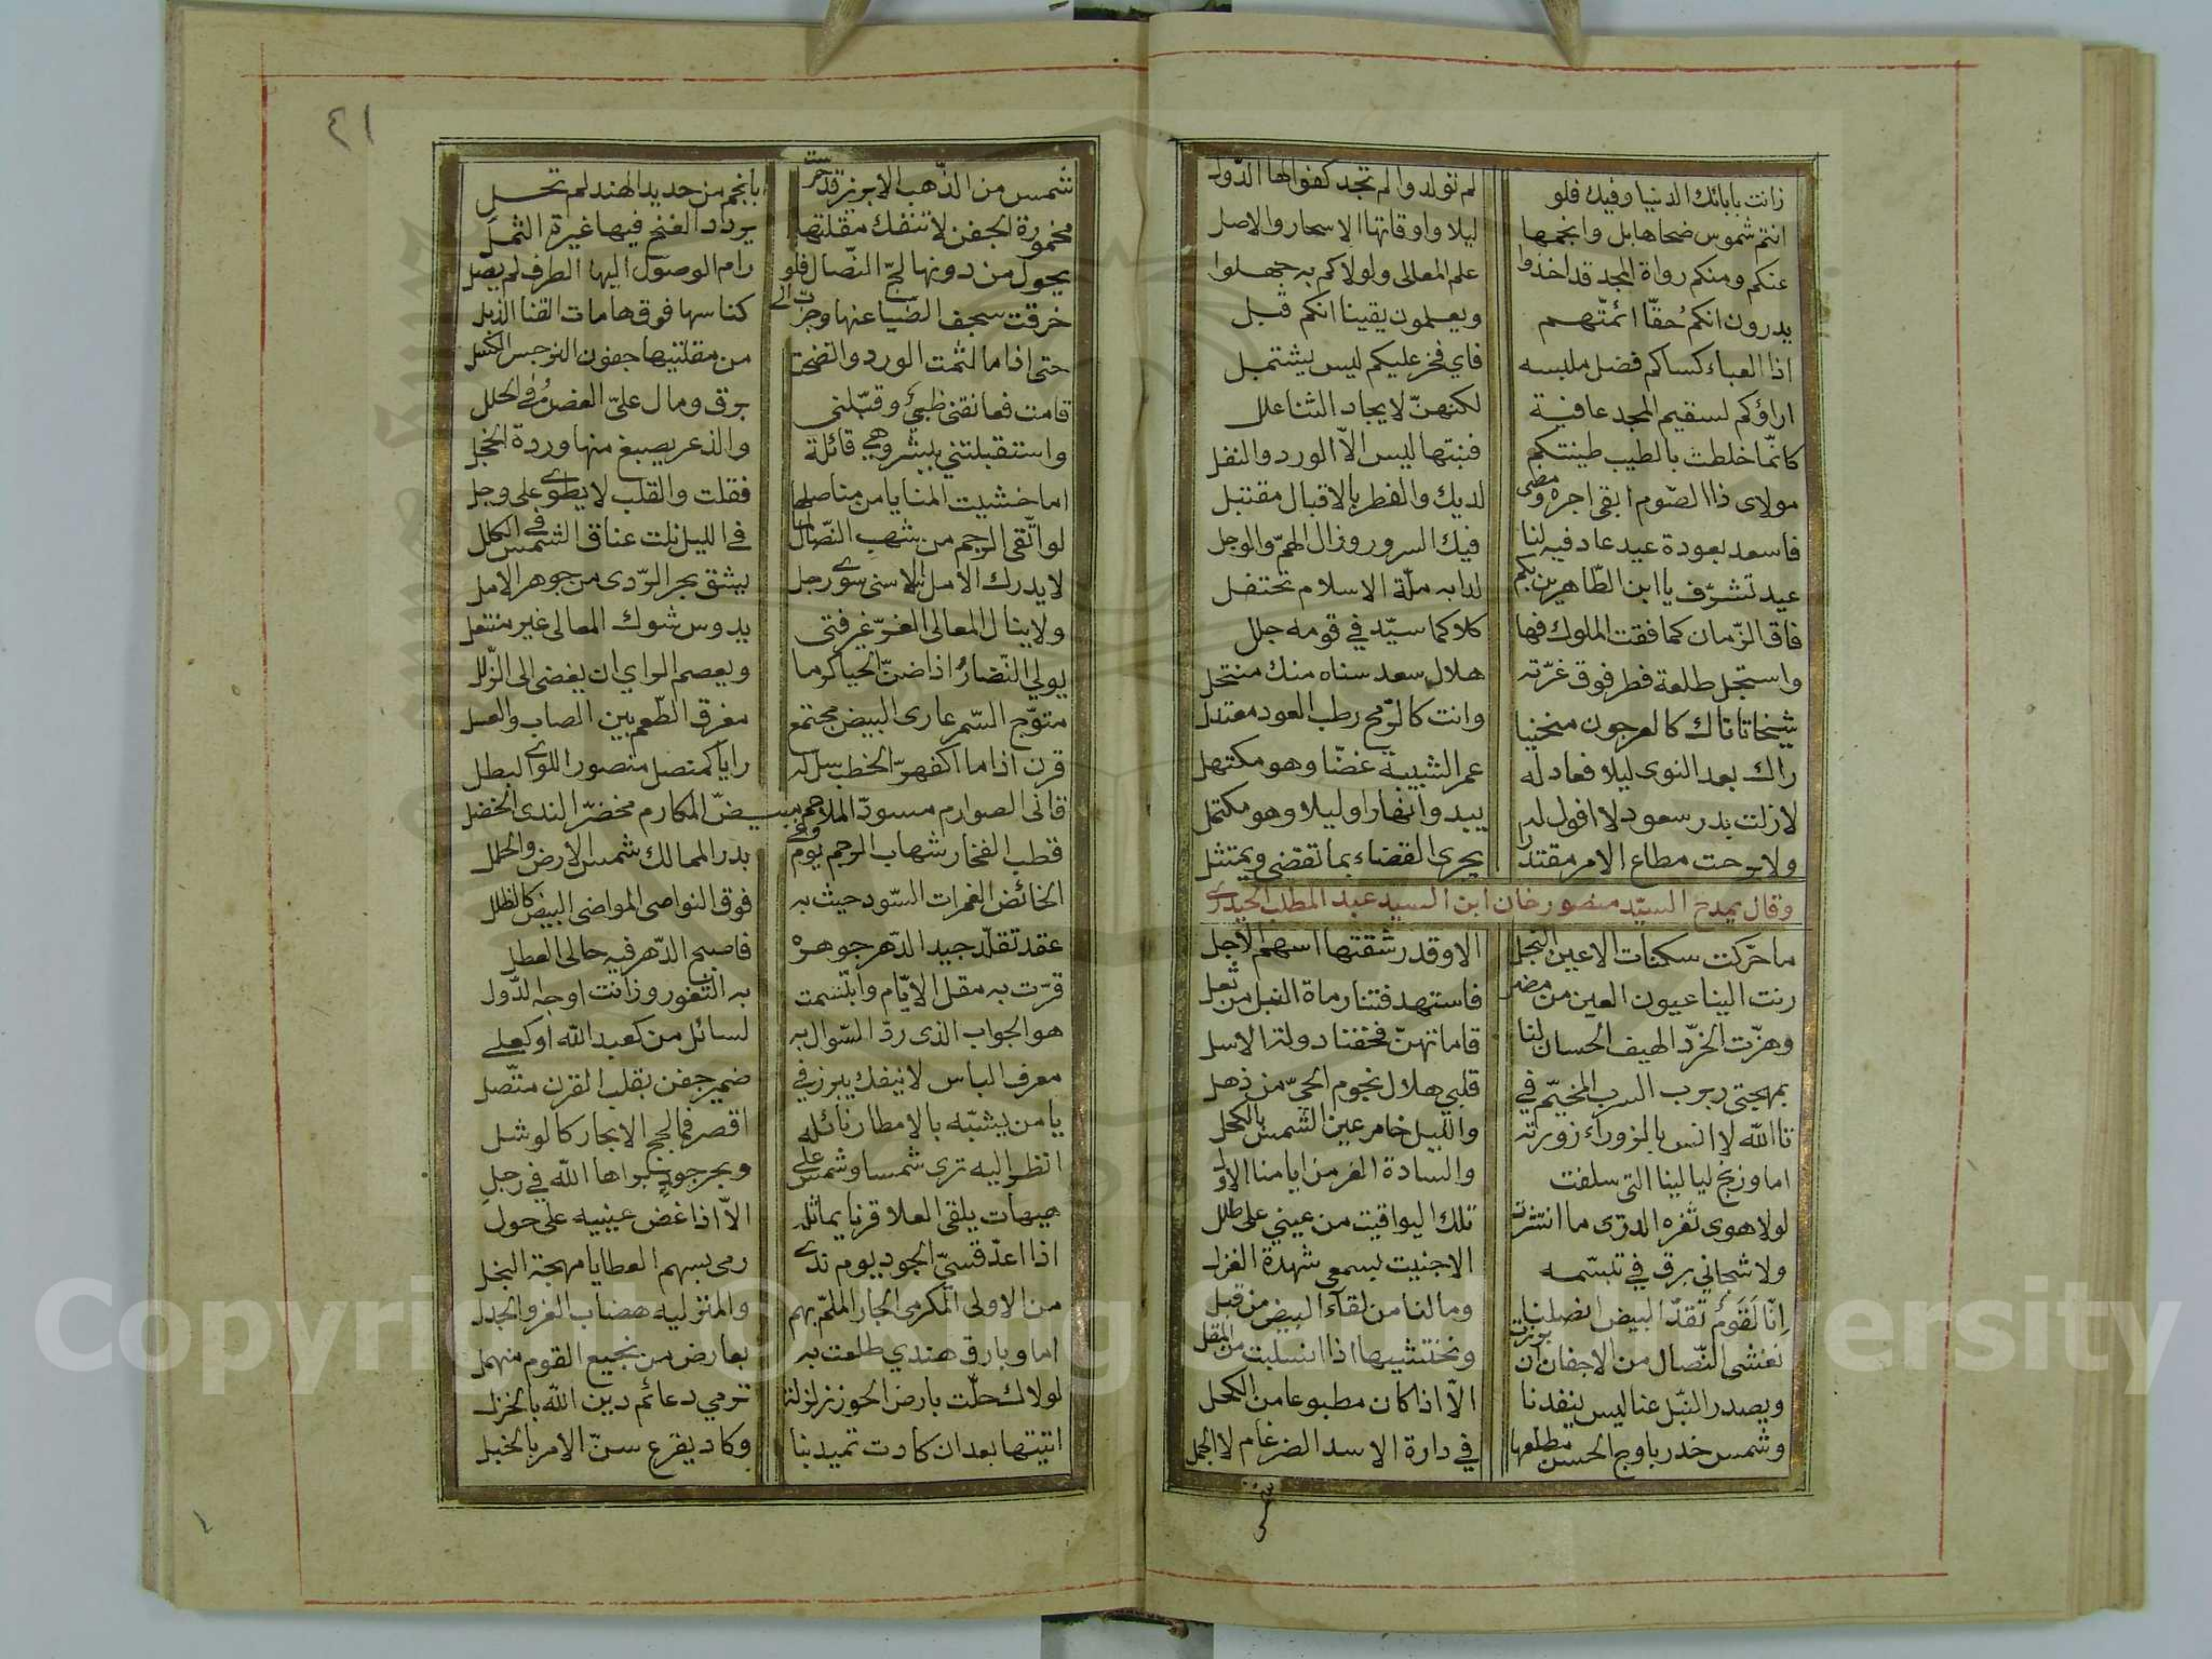 زانت بابائك الدنيا وفيك فلو لم تولدوا لم تجد كفوا لها الدول
انتم شموس ضحاها بل وانجمها ليلا واوقاتها الاسحار والاصل
عنكم ومنكم رواة المجد قد اخذوا علم المعالى ولولاكم به جهلوا
يدرون انكم حقّا ائمتّهم ويعلمون يقينا انكم قبل
اذا العباء كساكم فضل ملبسه فاي فخر عليكم ليس يشتمل
اراؤكم لسقيم المجد عافية لكنهنّ لايجاد الثنا علل
كانّما خلطت بالطيب طينتكم فنبتها ليس الاّ الورد والنفل
مولاى ذا الصّوم ابقى اجره ومضى لديك والفطر بالاقبال مقتبل
فاسعد بعودة عيد عاد فيه لنا فيك السرور وزال الهمّ والوجل
عيد تشرّف يا ابن الطّاهرين بكم لدا به ملّة الاسلام تحتفل
فاق الزّمان كما فقت الملوك فها كلاكما سيّد في قومه جلل
واستجل طلعة فطر فوق غرّته هلال سعد سناه منك منتحل
شيخا تاتاك كالعرجون منحنيا وانت كالرّمح رطب العود معتدل
راك بعد النوى ليلا فعاد له عمر الشبيبة غضّا وهو مكتهل
لازلت بدر سعود لا افول له يبدوا نهارا وليلا وهو مكتمل
ولا برحت مطاع الامر مقتدرا يجرى القضاء بما تقضى ويمتثل
وقال يمدح السيّد منصور خان ابن السيد عبد المطلب الحيدرى
ما حرّكت سكنات الاعين النجل الا وقد رشقتها اسهم الاجل
رنت الينا عيون العين من مضر فاستهدفتنا رماة النبل من ثعل
وهزّت الخرّد الهيف الحسان لنا قاماتهنّ فخفنا دولة الاسل
بمهجتى ربرب السرب المخيّم في قلبي هلال نجوم الحىّ من ذهل
تا الله لا انس بالزوراء زورته والليل خامر عين الشمس بالكحل
اما وزنج ليالينا التى سلفت والسّادة الغر من ايامنا الاول
لولا هوى ثغره الدرّى ما انتثرت تلك اليواقيت من عيني على طلل
ولا شجاني برق في تبسّمه الا جنيت بسمعى شهدة الغزل
انّا لقوم تقدّ البيض انصلنا وما لنا من لقآء البيض من قبل
نغشى النّصال من الاجفان ان برزت ونختشيها اذا انسلّت من المقل
ويصدر النّبل عنا ليس ينفدنا الاّ اذا كان مطبوعا من الكحل
وشمس خدر باوج الحسن مطلعها في دارة الاسد الضرغام لا الحمل
شمس
٤١
شمس من الذّهب الابريز قد حرست بانجم من حديد الهند لم تحل
مخمورة الجفن لا تنفك مقلتها يردد الغنج فيها غيرة الثمل
يحول من دونها لجّ النّصال فلو رام الوصول اليها الطرف لم يصل
خرقت سجف الضّيا عنها وجزت الى كناسها فوق هامات القنا الذبل
حتى اذا ما لثمت الورد والتضحت من مقلتيها جفون النرجس الكسل
قامت فعانقني ظبيّ وقبّلنى برق ومال علىّ الغصن في الحلل
واستقبلتني ببشر وهي قائلة والذعر يصبغ منها وردة الخجل
اما خشيت المنايا من مناصلها فقلت والقلب لا يطوى على وجل
لو اتّقى الرجم من شهب النّصال لما في الليل نلت عناق الشمس في الكلل
لا يدرك الامل الاسنى سوى رجل يشق بحر الرّدى من جوهر الامل
ولا ينال المعالى الغرّ غير فتى يدوس شوك المعالى غير منتعل
يولي النّضار اذا ضنّ الحيا كرما ويعصم الراي ان يفضى الى الزّلل
متوّج السّمر عارى البيض مجتمع مفرق الطّعم بين الصاب والعسل
قرن اذا ما اكفهرّ الخطب سل له رايا كمنصل منصور اللوى البطل
قانى الصوارم مسودّ الملاحم مبيضّ المكارم مخضرّ الندى الخضل
قطب الفخار شهاب الرجم يوم وغى بدر الممالك شمس الارض والحلل
الخائض الغمرات السّود حيث به فوق النواصى المواضى البيض كالظلل
عقد تقلّد جيد الدّهر جوهره فاصبح الدّهر فيه حالى العطل
قرّت به مقل الايّام وابتسمت به الثغور وزانت اوجه الدّول
هو الجواب الذى ردّ السّوال به لسائل من كعبد الله او كعلى
معرف الباس لا ينفك يبرز في ضمير جفن بقلب القرن متّصل
يا من يشبّه بالامطار نائله اقصر فما لجج الابحار كالوشل
انظر اليه ترى شمسا وشمس على وبحر جود براها الله في رجل
هيهات يلقى العلا قرنا يماثله الاّ اذا غض عينيه على حول
اذا اعدّ قسىّ الجود يوم ندى رمى بسهم العطايا مهجة البخل
من الاولى المكرمى الجار الملمّ بهم والمنزليه هضاب العز والجدل
اما وبارق هندي طلعت به بعارض من نجيع القوم منهمل
لولاك حلّت بارض الحوز زلزلة ترمي دعائم دين الله بالخزل
اتيتها بعد ان كادت تميد بنا وكاد يقرع سنّ الامر بالخبل
Copyright © King Saud University